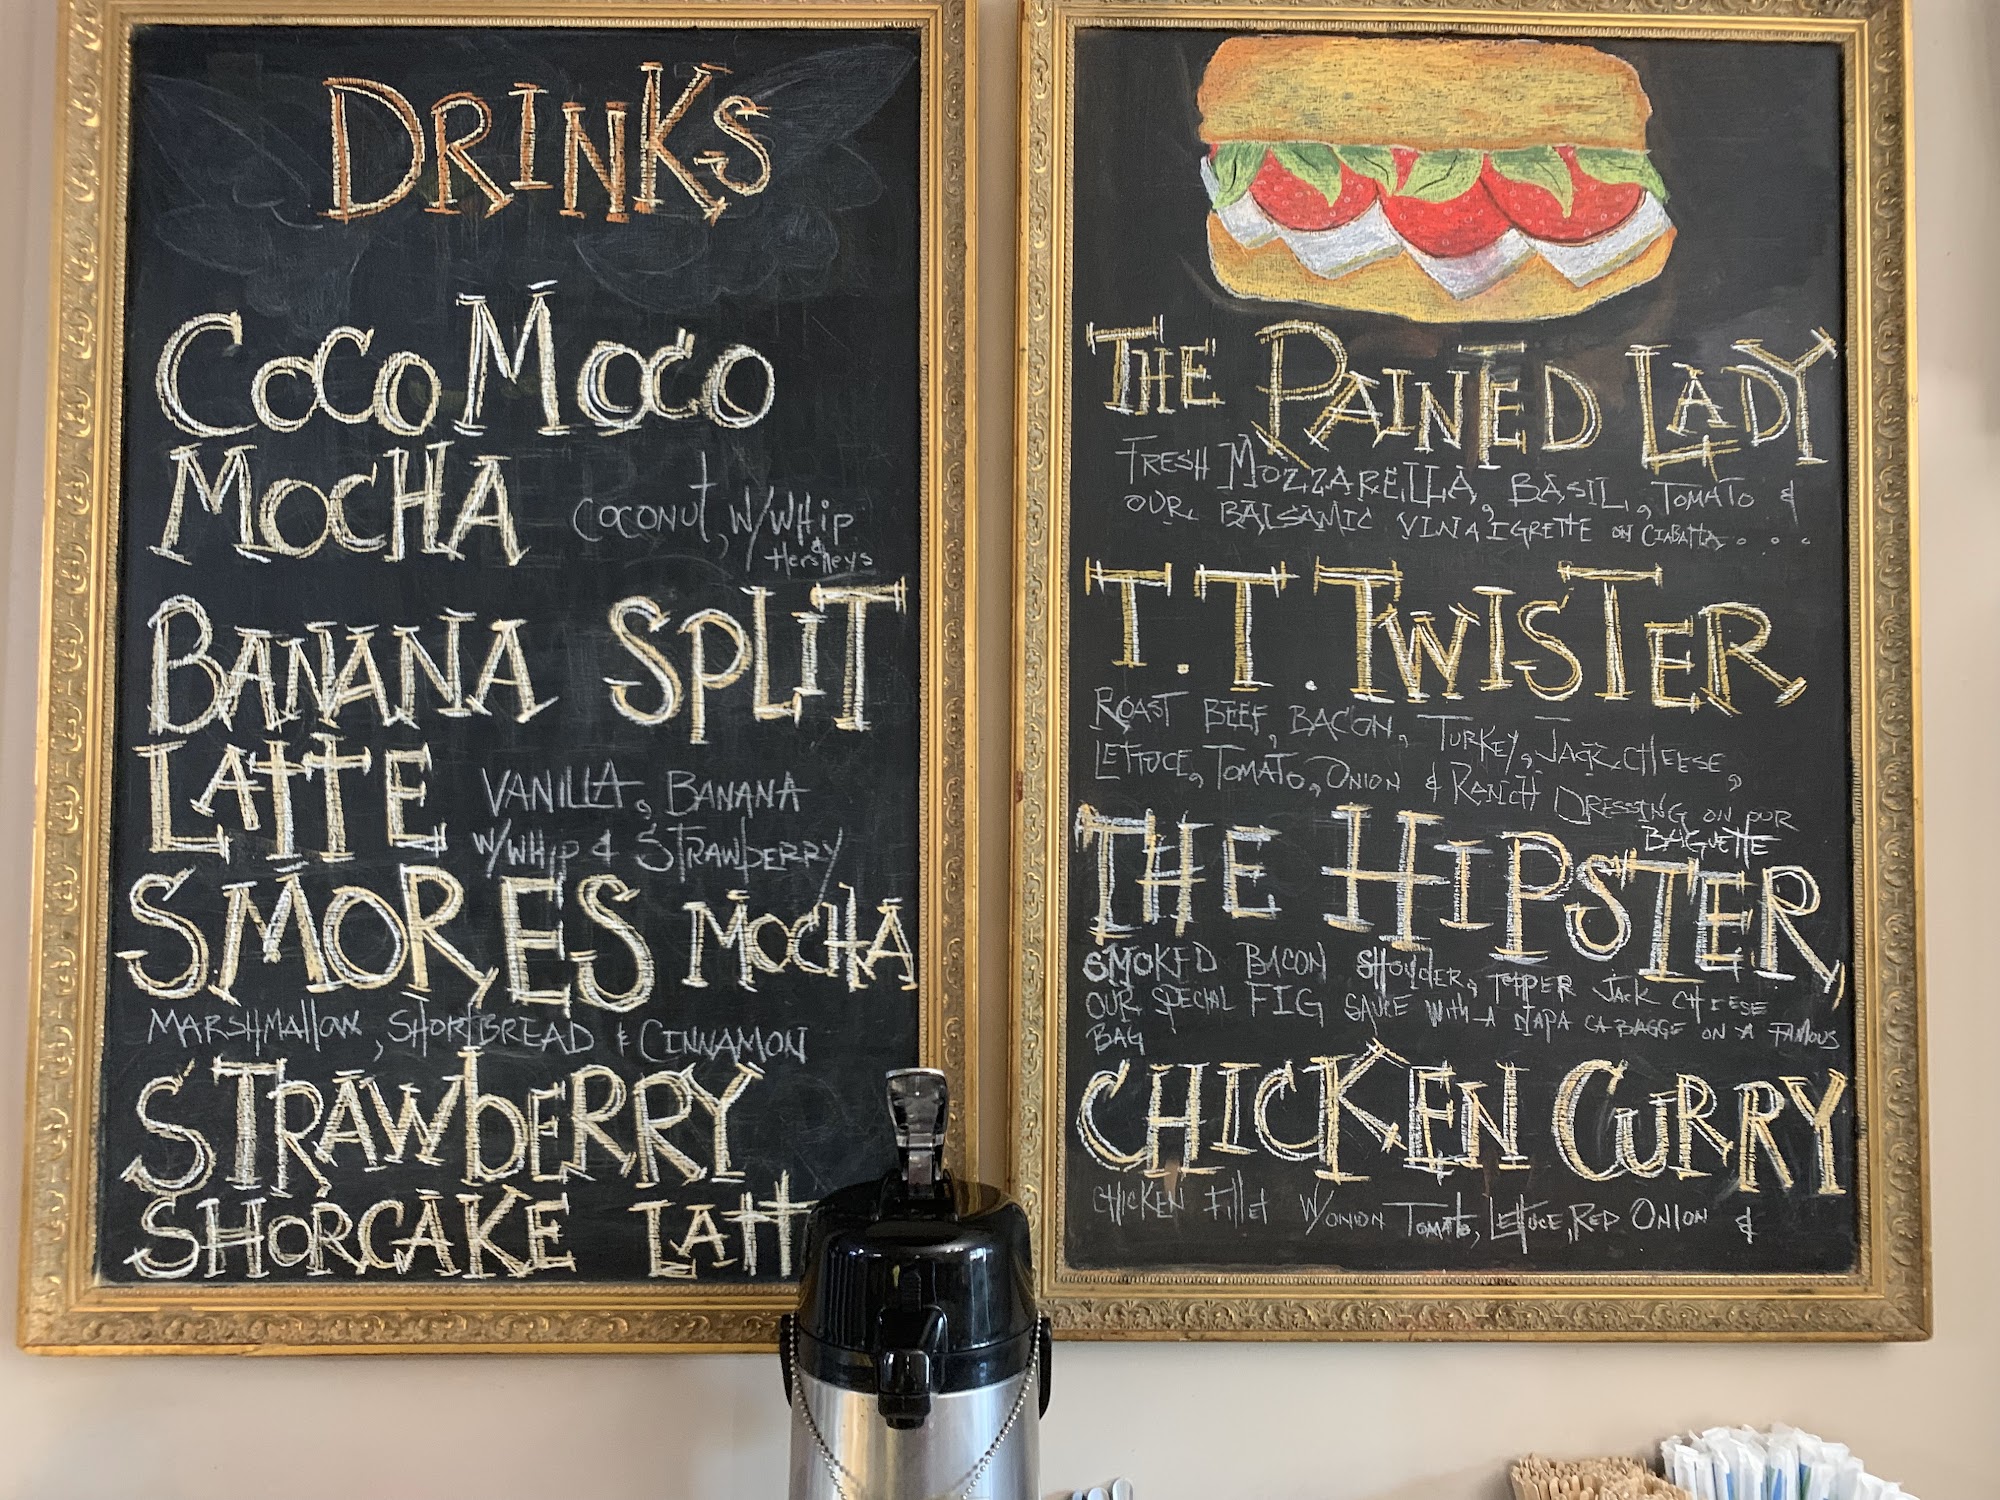 DRINKS
COCO MOCO
MOCHA COCONUT, W/WHIP
& Hersheys
BANANA SPLIT
LATTE VANILLA, BANANA
W/WHIP & STRAWBERRY
SMORES MOCHA
MARSHMALLOW, SHORTBREAD & CINNAMON
STRAWBERRY
SHORCAKE LATT
THE PAINTED LADY
FRESH MOZZARELLA, BASIL, TOMATO &
OUR BALSAMIC VINAIGRETTE ON CIABATTA....
T.T. TWISTER
ROAST BEEF, BACON, TURKEY, JACK CHEESE,
LETTUCE, TOMATO, ONION & RANCH DRESSING ON OUR
BAGUETTE
THE HIPSTER,
SMOKED BACON SHOULDER, PEPPER JACK CHEESE
OUR SPECIAL FIG SAUCE WITH A NAPA CABAGGE ON A FAMOUS
BAG
CHICKEN CURRY
CHICKEN FILLET W/ONION TOMATO, LETTUCE, RED ONION &